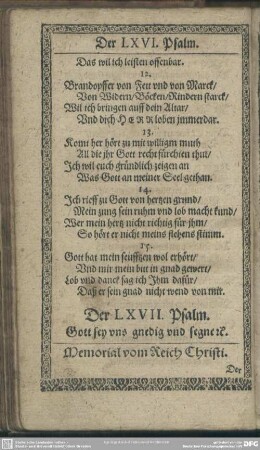 Der LXVI. Psalm.
Das wil ich leisten offenbar.
12.
Brandopffer von Fett vnd von Marck/
Von Widern/Böcken/Rindern starck/
Wil ich bringen auff dein Altar/
Vnd dich HERRN loben jmmerdar.
13.
Komt her hört zu mit willigm muth
All die jhr Gott recht fürchten thut/
Ich wil euch gründlich zeigen an
Was Gott an meiner Seel gethan.
14.
Ich rieff zu Gott von hertzen grund/
Mein zung sein ruhm vnd lob macht kund/
Wer mein hertz nicht richtig für jhm/
So hört er nicht meins flehens stimm.
15.
Gott hat mein seufftzen wol erhört/
Vnd mir mein bitt in gnad gewert/
Lob vnd danck sag ich Ihm dafür/
Daß er sein gnad nicht wend von mir.
Der LXVII. Psalm.
Gott sey vns gnedig vnd segne ꝛc.
Memorial vom Reich Christi.
Der